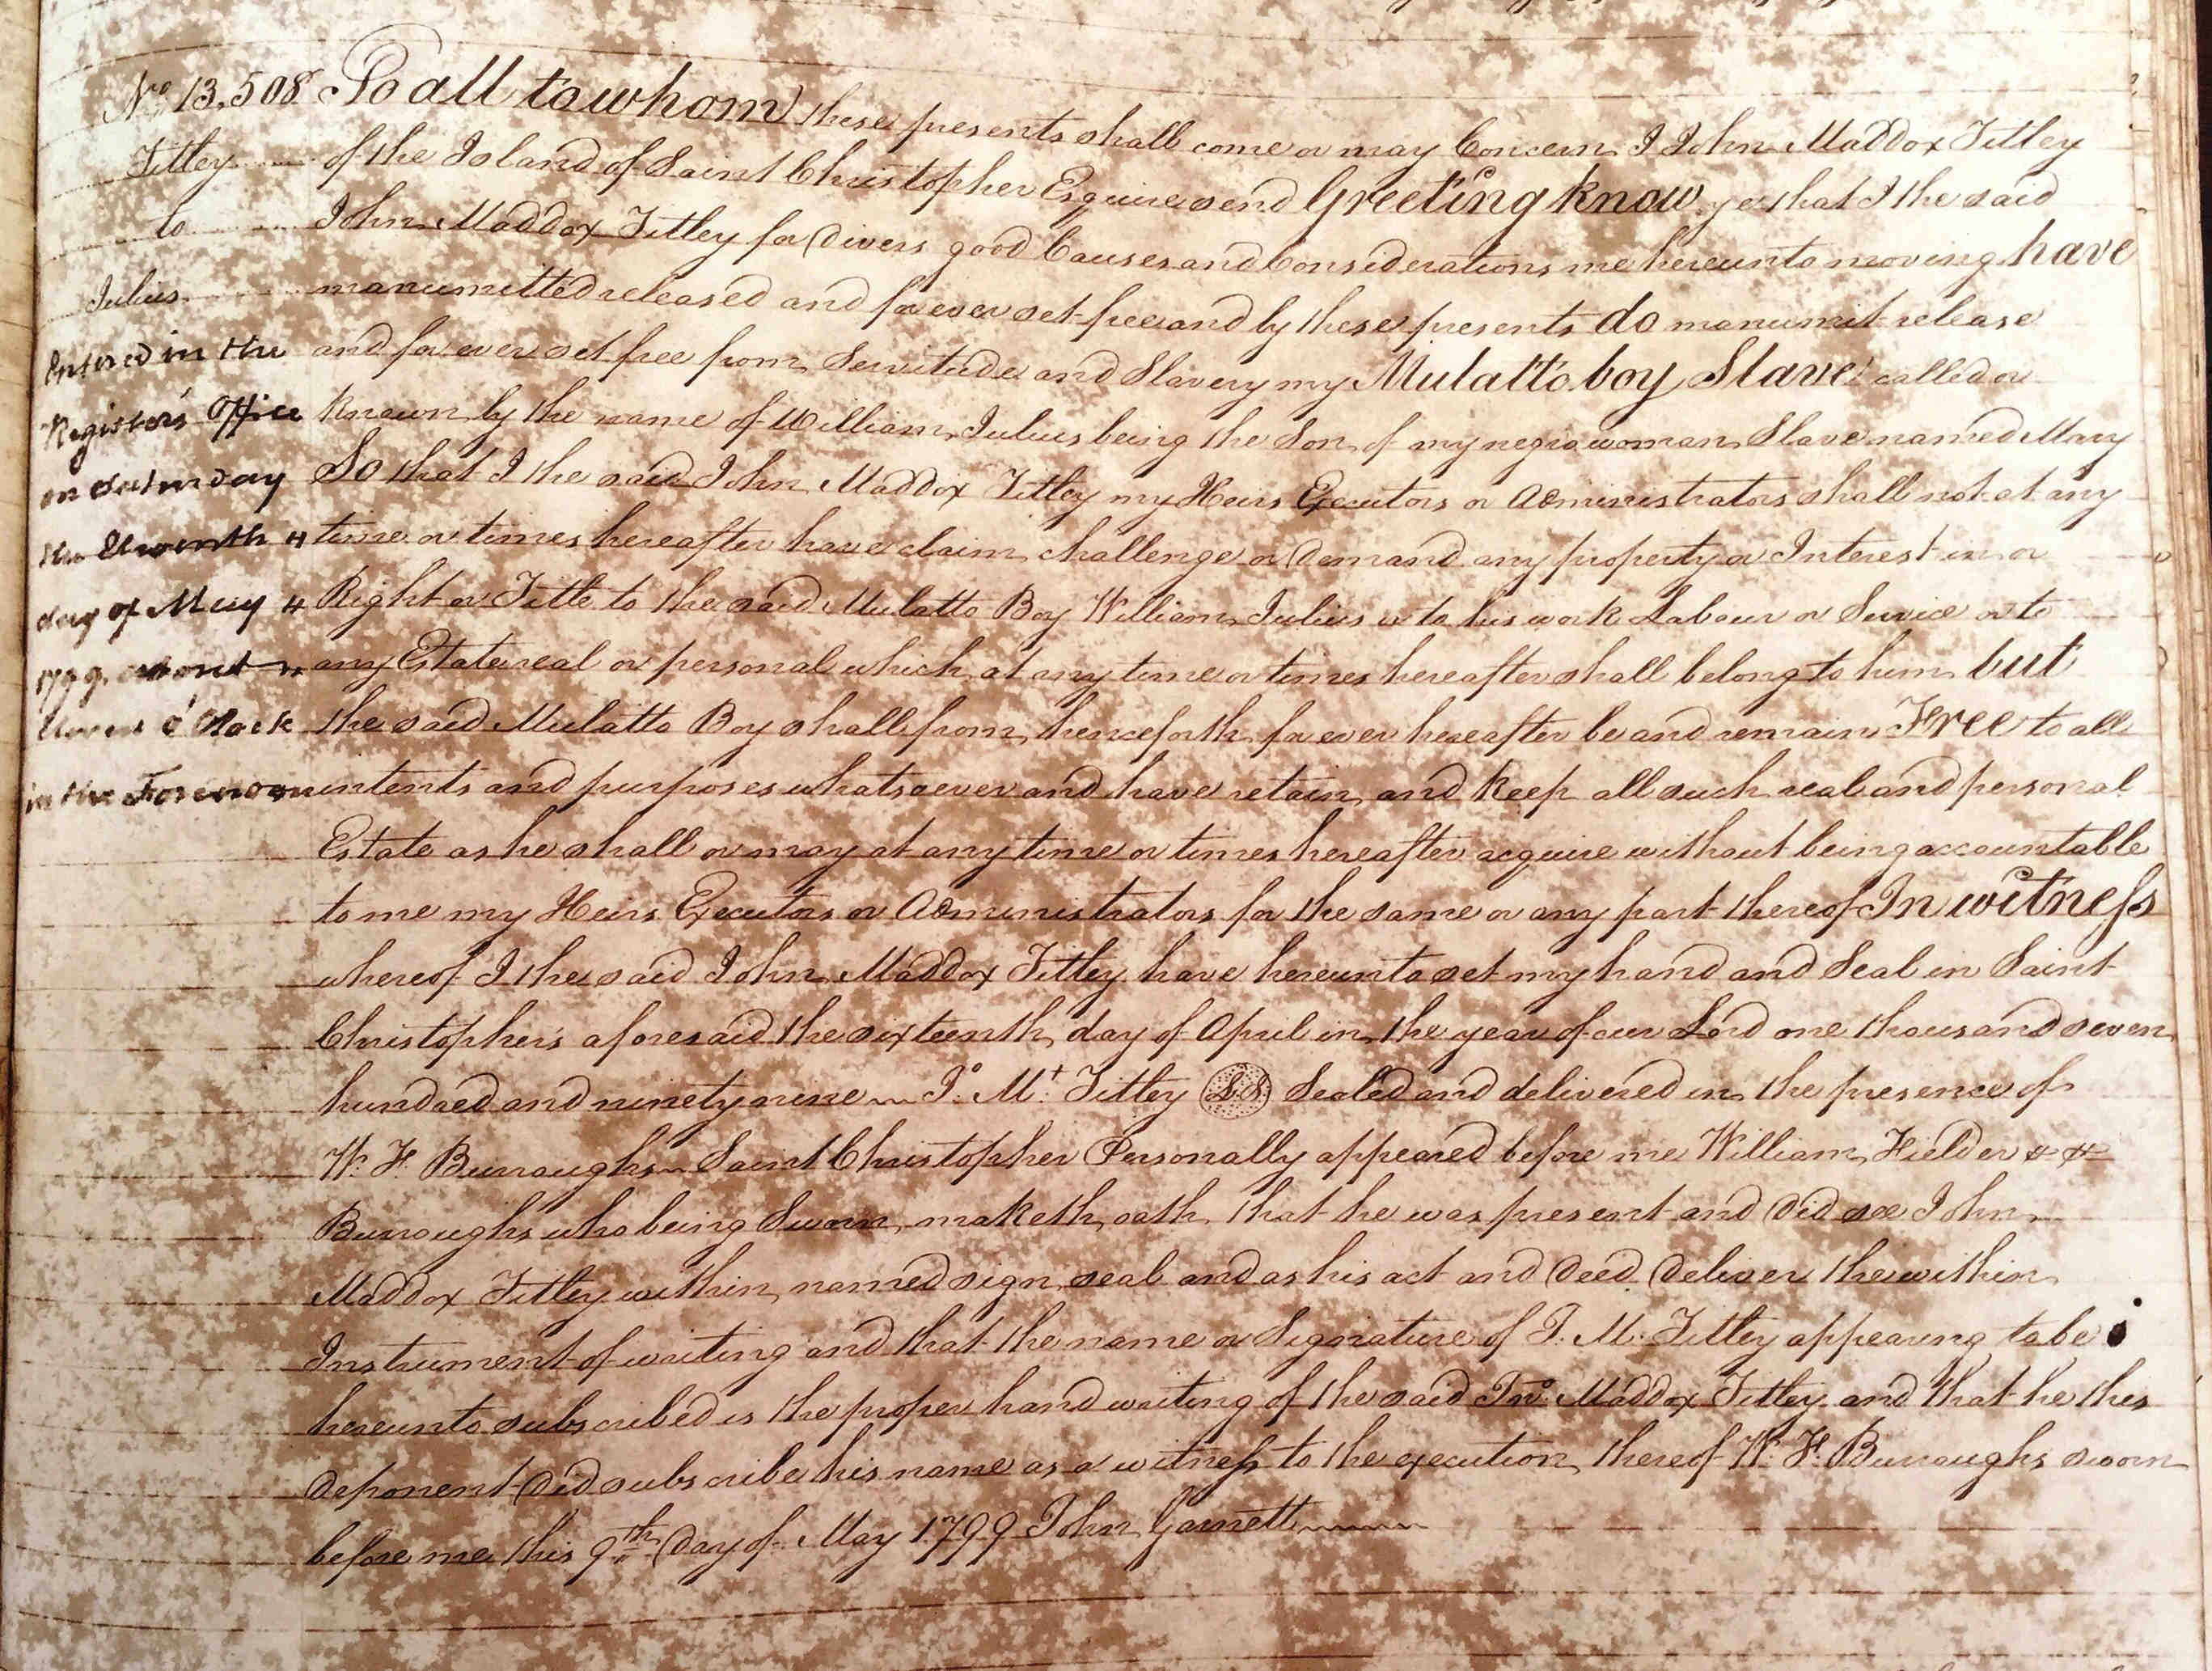 No. 13,508 To all to whom these presents shall come or may Concern I John Maddox Titley
Titley of the Island of Saint Christopher Esquire send Greeting know ye that I the said
to John Maddox Titley for Divers good Causes and Considerations me hereunto moving have
Julius manumitted released and for ever set free and by these presents do manumit release
Entered in the and for ever set free from Servitude and Slavery my Mulatto boy Slave called or
Register's Office known by the name of William Julius being the Son of my negro woman Slave named Mary
on Saturday So that I the said John Maddox Titley my Heirs Executors or Administrators shall not at any
the Eleventh time or times hereafter have claim challenge or Demand any property or Interest in or
day of May Right or Title to the said Mulatto Boy William Julius or to his work Labour or Service or to
1799. about any Estate real or personal which at any time or times hereafter shall belong to him but
Eleven o'Clock the said Mulatto Boy shall from henceforth for ever hereafter be and remain Free to all
in the Forenoon intents and purposes whatsoever and have retain and keep all such real and personal
Estate as he shall or may at any time or times hereafter acquire without being accountable
to me my Heirs Executors or Administrators for the same or any part thereof In witness
whereof I the said John Maddox Titley have hereunto set my hand and Seal in Saint
Christopher's aforesaid the sixteenth day of April in the year of our Lord one thousand seven
hundred and ninety nine Jo. Mt. Titley LS Sealed and delivered in the presence of
W. F. Burroughs Saint Christopher Personally appeared before me William Fielder
Burroughs who being Sworn maketh oath that he was present and Did see John
Maddox Titley within named sign seal and as his act and Deed Deliver the within
Instrument of writing and that the name or Signature of J. M. Titley appearing to be
hereunto subscribed is the proper hand writing of the said Jno. Maddox Titley and that he this
Deponent Did subscribe his name as a witness to the execution thereof W. F. Burroughs sworn
before me this 9th Day of May 1799 John Garnett